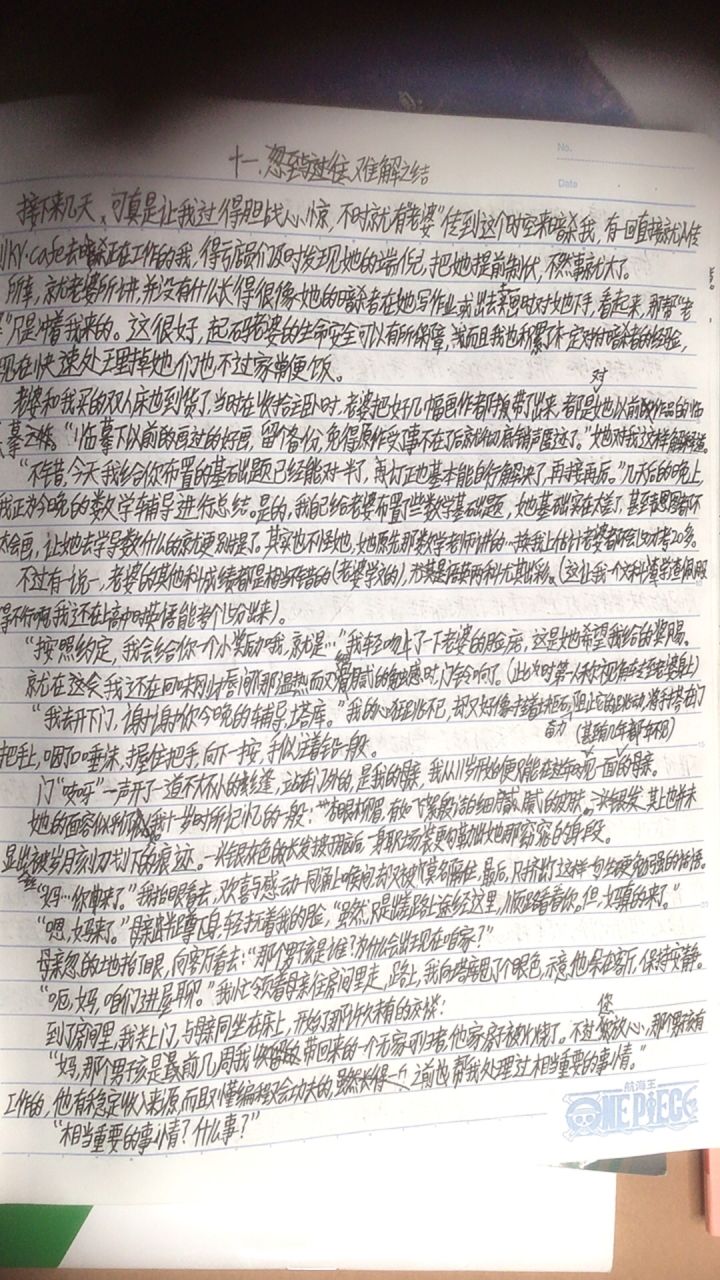 十一、忽至与过往、难解之结
No.
Date
接下来几天，可真是让我过得胆战心惊，不时就有“老婆”传到这个时空来暗杀我，有一回直接就传
KY·cafe去暗杀正在工作的我，得亏店员们及时发现她的端倪，把她提前制伏，不然事就大了。
所幸，就老婆所讲，并没有什么长得很像她的暗杀者在她写作业或出去采风时对她下手，看起来，那帮“老
”只是冲着我来的。这很好，起码老婆的生命安全可以有所保障，而且我也积累了一定对付暗杀者的经验，
现在快速处理掉她们也不过家常便饭。
老婆和我买的双人床也到货了，当时在收拾主卧时，老婆把好几幅画作都带了出来，都是她以前对作品的临
摹之作。“临摹下以前画过的好画，留个备份，免得原作实事不在了后就彻底销声匿迹了。”她对我这样解释道。
“不错，今天我给你布置的基础题已经能对一半了，再订正也基本能自行解决了，再接再厉。”几天后的晚上，
我正为今晚的数学辅导进行总结。是的，我已给老婆布置了些数学基础题，她基础实在太差了，甚至表图都不
太会画，让她去学导数什么的就更别提了。其实也不怪她，她原先那数学老师讲的 换我上估计老婆都能考20多。
不过有一说一，老婆的其他科成绩都是相当不错的（老婆学文的），尤其是语英两科尤其出彩。（这让我一个文科渣学渣佩服
得不行啊，我还在上高中时英语能考个15分出来）。
“按照约定，我会给你一个小奖励哦，就是…”我轻吻上了一下老婆的脸庞，这是她希望我给的奖赐。
就在这会我还在回味刚才唇间那温热而又滑腻的触感时，门铃响了。（此为时第一人称视角在转至老婆身上）
“我去开下门，谢谢你今晚的辅导，塔库。”我的心狂跳不已，却又好像 着 石 阻止它的跳动，将手搭在门
（甚至几年都不见）
把手上，咽了口唾沫，握住把手，向下一按，手似注着铅一般。
门“吱呀”一声开了一道不大不小的缝，站在门外的，是我的母亲，我从11岁开始便只能在过年见一面的母亲。
她的面容似乎仍似我十一岁时所记忆的一般：
显出被岁月刻刀划下的痕迹。一头银灰色的长发披于脑后，一身职场装更勾勒出她那窈窕的身段。
“妈…你回来了。”我抬眼看去，欢喜与感动一同涌上喉间却又被莫名隔住，最后，只挤出了这样一句生硬勉强的话语。
“嗯，妈来了。”母亲半蹲下身，轻抚着我的脸，“虽然，只是出差路上途经这里，顺路看看你。但，妈真的来了。”
母亲忽的土地抬了眼，向客厅看去：“那个男孩是谁？为什么会出现在咱家？”
“呃，妈，咱们进屋聊。”我忙领着母亲往房间里走，路上，我向塔库甩了个眼色，示意他呆在客厅，保持安静。
到了房间里，我关上门，与母亲同坐在床上，开始了那许久未有的交谈：
“妈，那个男孩是最前几周我带回来的一个无家可归者，他家房子被火烧了。不过您放心，那个男孩有
工作的，他有稳定收入来源，而且懂编程又会功夫的，之前也帮我处理过相当重要的事情。”
“相当重要的事情？什么事？”
航海王
ONE PIECE